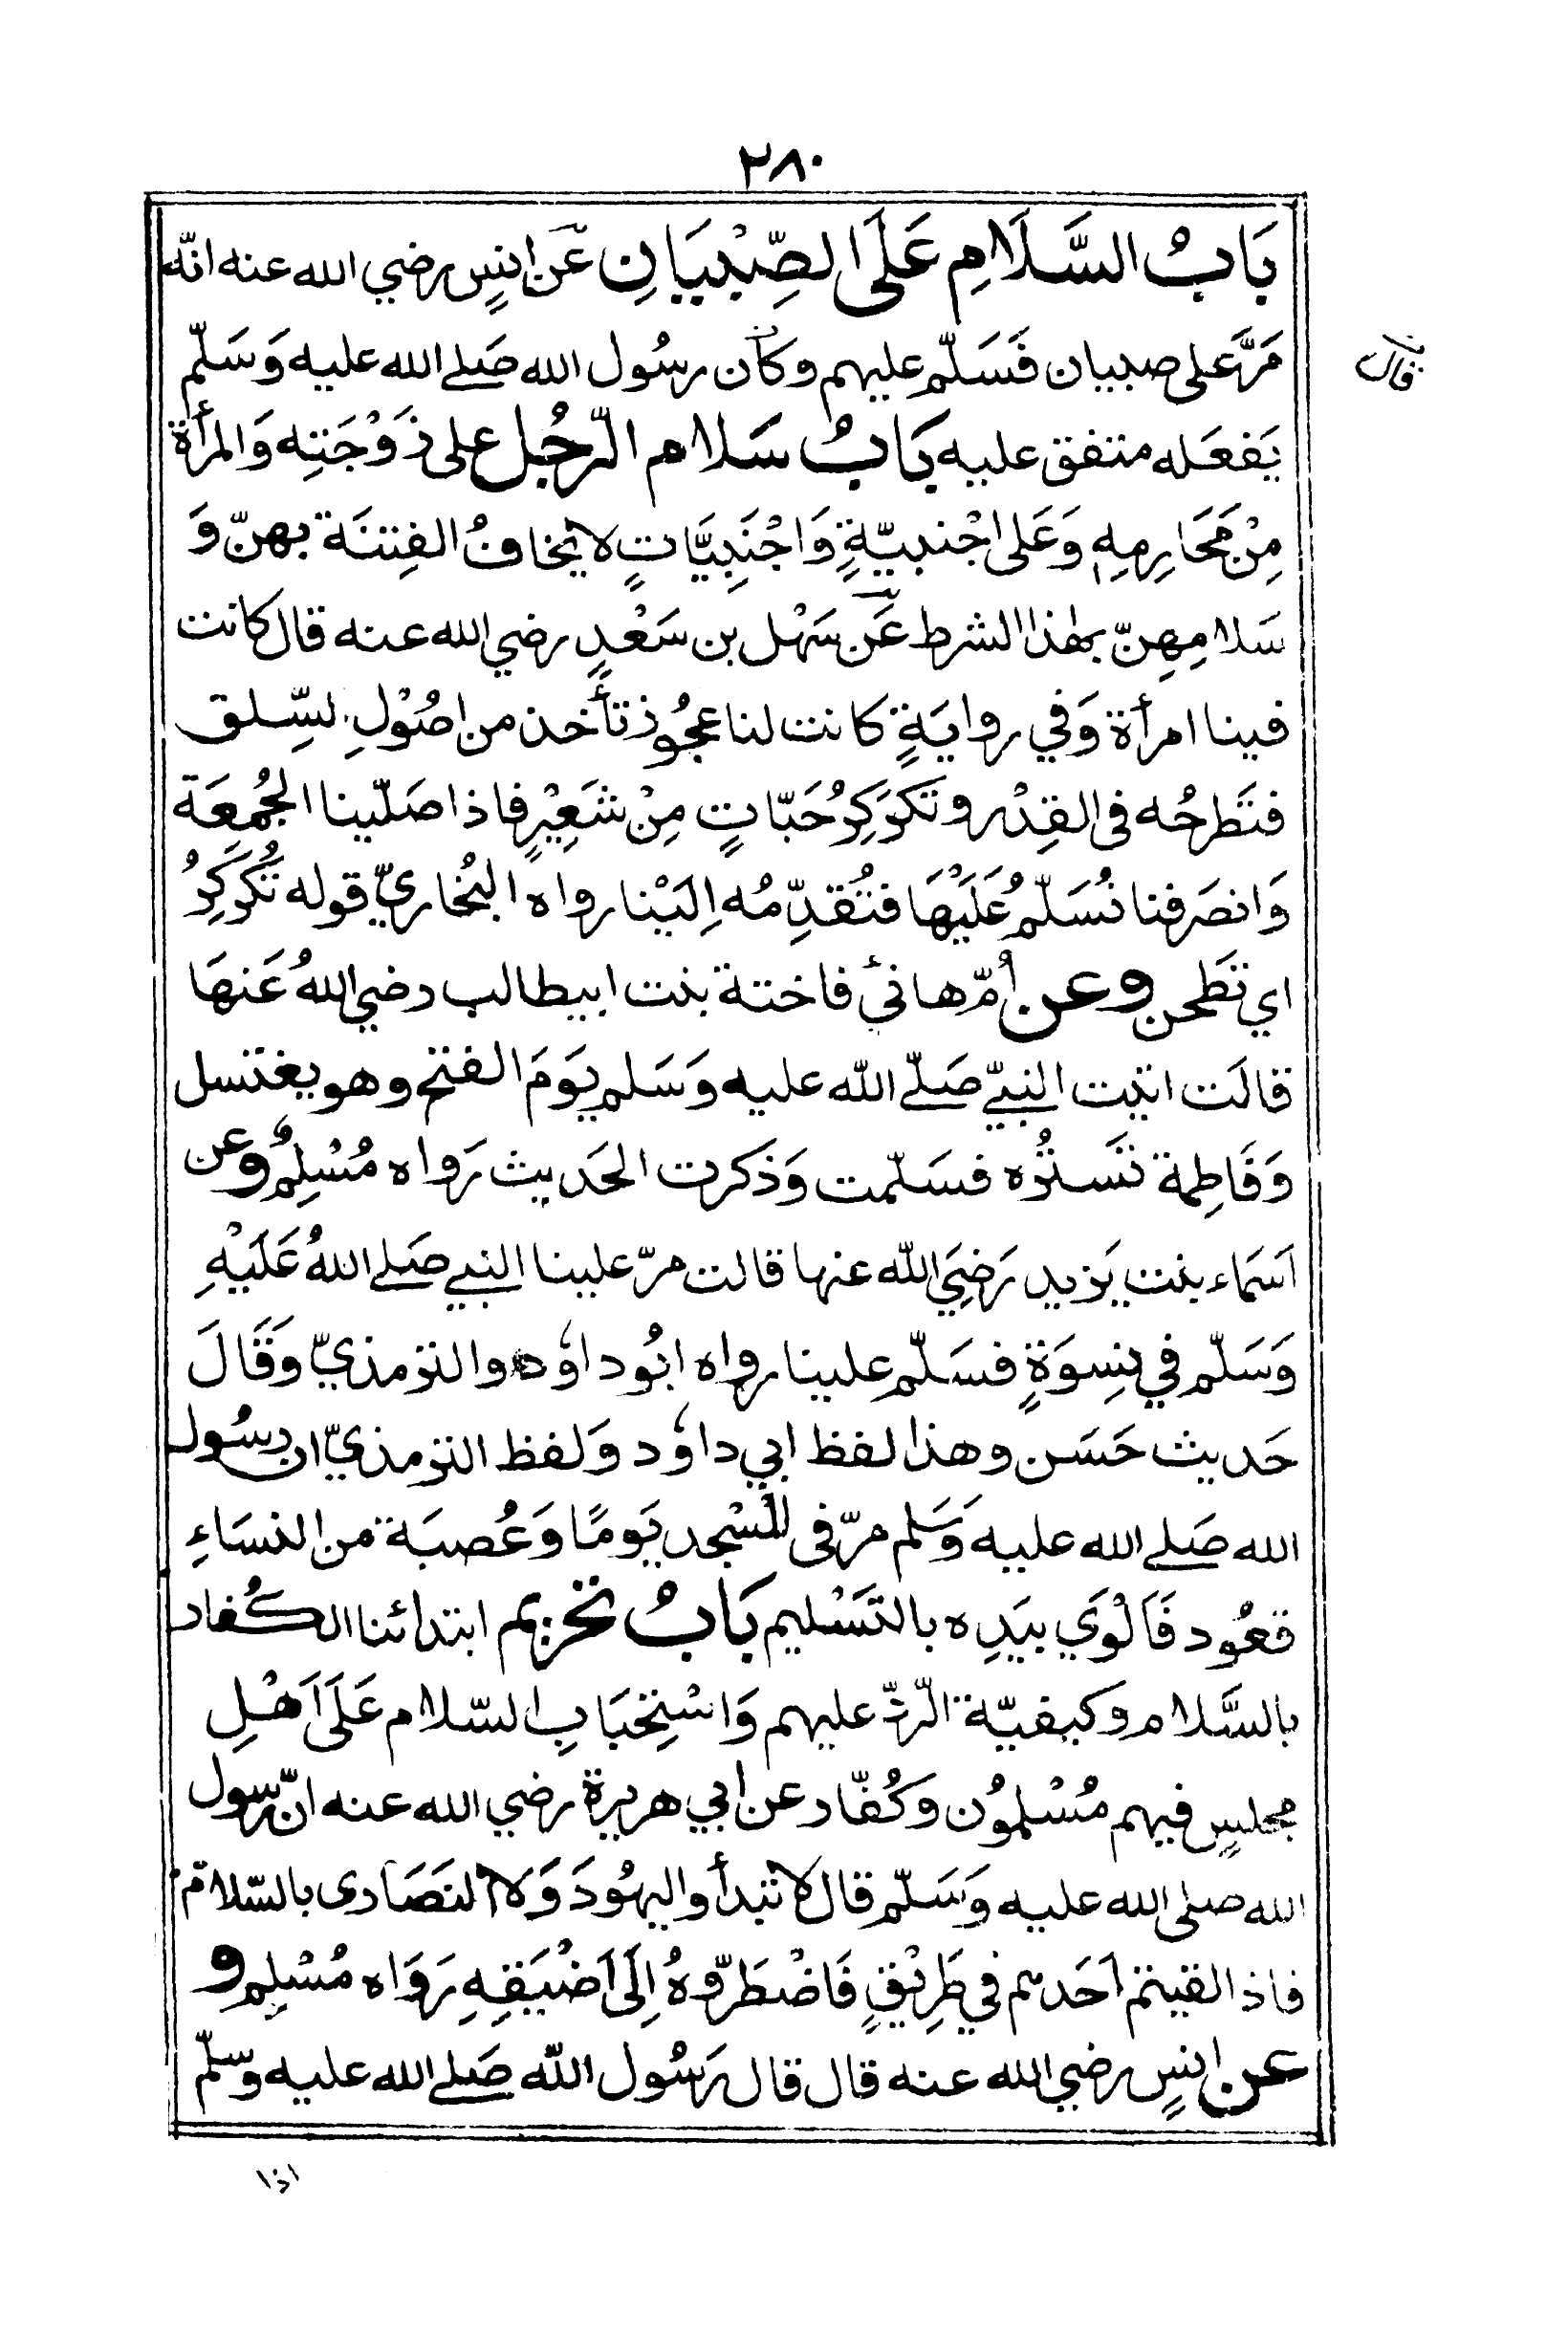 ٢٨٠
بَابُ السَّلَامِ عَلَى الصِّبْيَانِ عَن انسٍ رضي الله عنه انّه
مَرَّ على صبيان فَسَلّم عليهم وكان رسُول الله صَلى الله عليه وَسَلّم
قال
يَفعَله متفق عليه بَابُ سَلام الرّجُل على زَوْجَتِه وَالمرأة
مِنْ مَحَارِمِه وَعَلى اجْنبيّةٍ وَاجْنَبِيَّاتٍ لا يخافُ الفِتنَة بهنّ وَ
سَلامِهِنّ بهٰذا الشرط عَن سَهْل بن سَعْدٍ رضي الله عنه قال كانت
فينا امرأة وَفي روايَةٍ كانت لنا عجُوز تأخذ من اصُوْلِ السِّلق
فتَطرحُه فى القِدْر وتكَرْكِرُ حَبّاتٍ مِنْ شَعِيْرٍ فاذا صَلّينا الجُمِعَة
وَانصَرفنا نُسَلّمُ عَلَيْهَا فتُقدِّمُه اِلَيْنا رواه البُخاريّ قوله تُكَرْكِرُ
اي تَطحن وعن أُمّ هانئ فاختة بنت ابيطالب رضي اللهُ عَنهَا
قالَت اتيت النبيّ صَلّى الله عليه وَسَلم يَوَمَ الفتح وهو يغتسل
وَفَاطِمة تَستُرُه فسَلّمت وَذكرت الحَديث رَواه مُسْلِمٌ وعن
اَسمَاء بنت يَزيد رَضِيَ الله عنها قالت مرّ علينا النبي صَلى اللهُ عَلَيْهِ
وَسَلّم في نِسوَةٍ فسَلّم علينا رواه ابُو داوٗد والترمذيّ وَقَالَ
حَديث حَسَن وهذا لفظ ابي داوٗد وَلفظ الترمذيّ ان رسُول
الله صَلى الله عليه وَسَلم مرّ فى المَسْجد يَومًا وَعُصبَة من النسَاءِ
قعُود فَاَلْوَي بيَدِه بالتَسْليم بَابُ تحريم ابتدائنا الكُفار
بالسَّلام وكيفيّة الرّدّ عليهم وَاسْتِحْبَابِ السّلام عَلَى اَهْلِ
مجلسٍ فيهم مُسْلمُون وَكُفّار عن ابي هريرة رضي الله عنه انّ رسول
الله صلى الله عليه وَسَلّم قال لا تبدأوا اليهُودَ وَلا النَصَارى بالسّلام
فاذا لقيتم اَحَدهم في طَرِيْقٍ فَاضْطَرّوْهُ اِلَى اَضْيَقِهِ رَوَاه مُسْلِم و
عن انسٍ رضي الله عنه قال قال رَسُول الله صَلى الله عليه وسلّم
اذا